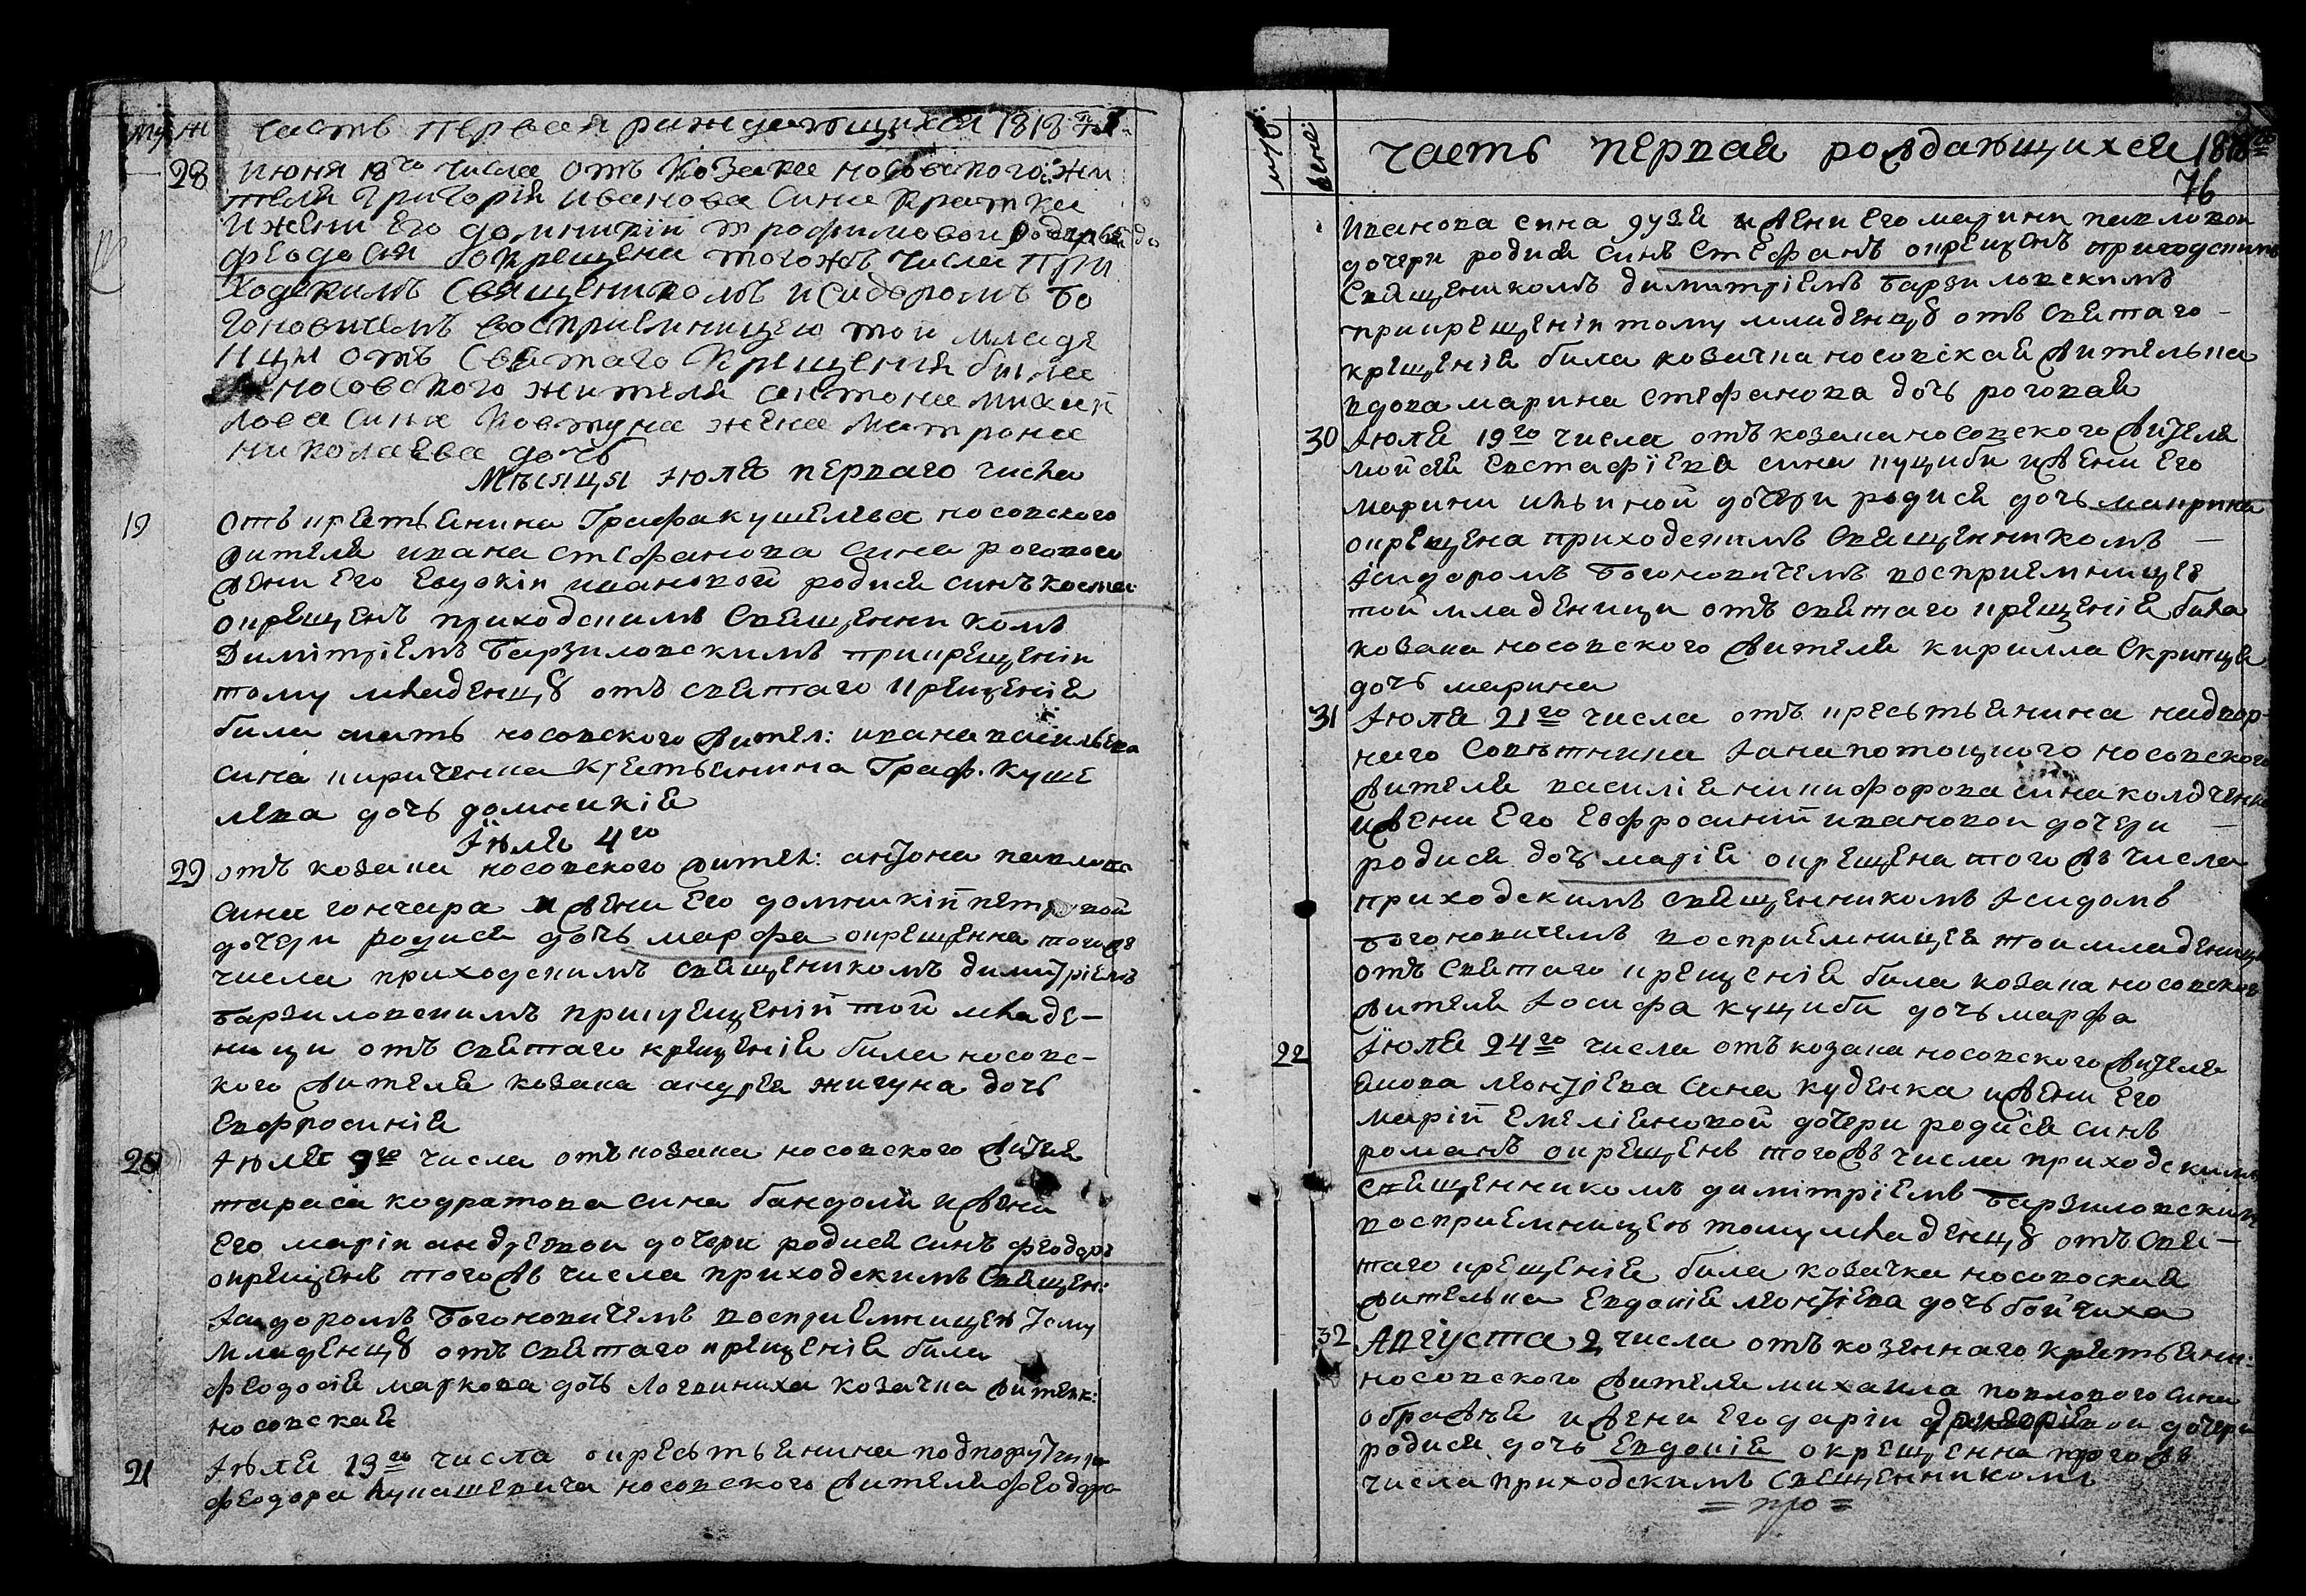 му ж часть первая раждающихся 1818
28 июня 18го числа отъ козака носовского жи
теля Григорія иванова сина кратка
и жени его домникіи трофимовой родися до
феодосия окрещена тогожъ числа при
ходскимъ священикомъ исидоромъ Бо
гоновичемъ восприемницею той младе
ници отъ святаго крещения была
носовского жителя антона михай
лова сина ковтуна жена матрона
николаева дочь
Мѣсяця іюля перваго числа
19 отъ крестьянина Графа кушелева носовского
жителя ивана стефанова сина рогового
жени его евдокіи ивановой родися синъ косма
окрещенъ приходскимъ священникомъ
Димітріемъ Барзиловскимъ прикрещеніи
тому младенцу отъ святаго крещенія
била мать носовского жител: ивана васильева
сина кириченка крестьянина Граф. куше
лева дочь домникія
Іюля 4го
29 отъ козака носовского жител: антона павлова
сина гончара и жени его домникіи петровой
дочери родися дочь марфа окрещенна тогоже
числа приходскимъ священикомъ димитріемъ
барзиловскимъ прикрещеніи той младе-
ници отъ святаго крещенія била носовс-
кого жителя козака андрея жигуна дочь
евфросинія
20 Іюля 9го числа отъ козака носовского жителя
тараса кодратова сина бандоли и жени
его маріи андреевои дочери родися синъ феодоръ
окрещенъ тогожъ числа приходскимъ священ:
Ісидоромъ Богоновичемъ восприемницею тому
младенцу отъ святаго крещенія била
феодосія маркова дочь логвиниха козачка жителк:
носовская
21 Іюля 13го числа окресьтьянина подпорутчика
феодора лукашевича носовского жителя феодора
муж: жене: часть первая рождающихся 1818го
76
иванова сина дузя и жени его марини павловои
дочери родися синъ стефанъ окрещенъ приходскимъ
священикомъ димитріемъ барзиловскимъ
прикрещеніи тому младенцу отъ святаго -
крещенія била козачка носовская жителька
вдова марина стефанова дочь роговая
30 Іюля 19го числа отъ козака носовского жителя
мойсея евстафіева сина куциби и жени его
марини ильиной дочери родися дочь маврина
окрещена приходскимъ священникомъ -
Ісидоромъ Богоновичемъ восприемницею
той младеници отъ святаго крещенія била
козака носовского жителя кирилла скрипця
дочь марина
31 Іюля 21го числа отъ кресьтьянина надвор-
ного совѣтника Іана потоцкого носовского
жителя василія никифорова сина колдченка
и жени его евфросиніи ивановои дочери -
родися дочь марія окрещена тогожъ числа
приходскимъ священникомъ Ісидомъ
Богоновичемъ восприемницею той младеници
отъ святаго крещенія била козака носовского
жителя Іосифа куциби дочь марфа
22 Іюля 24го числа отъ козака носовского жителя
якова леонтіева сина куденка и жени его
маріи емеліяновой дочери родися синъ
романъ окрещенъ тогожъ числа приходскимъ
священникомъ димітріемъ Барзиловским
восприемницею тому младенцу отъ свя-
таго крещенія била козачка носовоская
жителька евдокія леонтіева дочь бойчиха
32 Августа 2 числа отъ козеннаго крестьяни:
носовского жителя михаила повлового сина
ображѣя и жени его даріи дочери
родися дочь евдокія окрещенна тогожъ
числа приходскимъ священникомъ
= про =